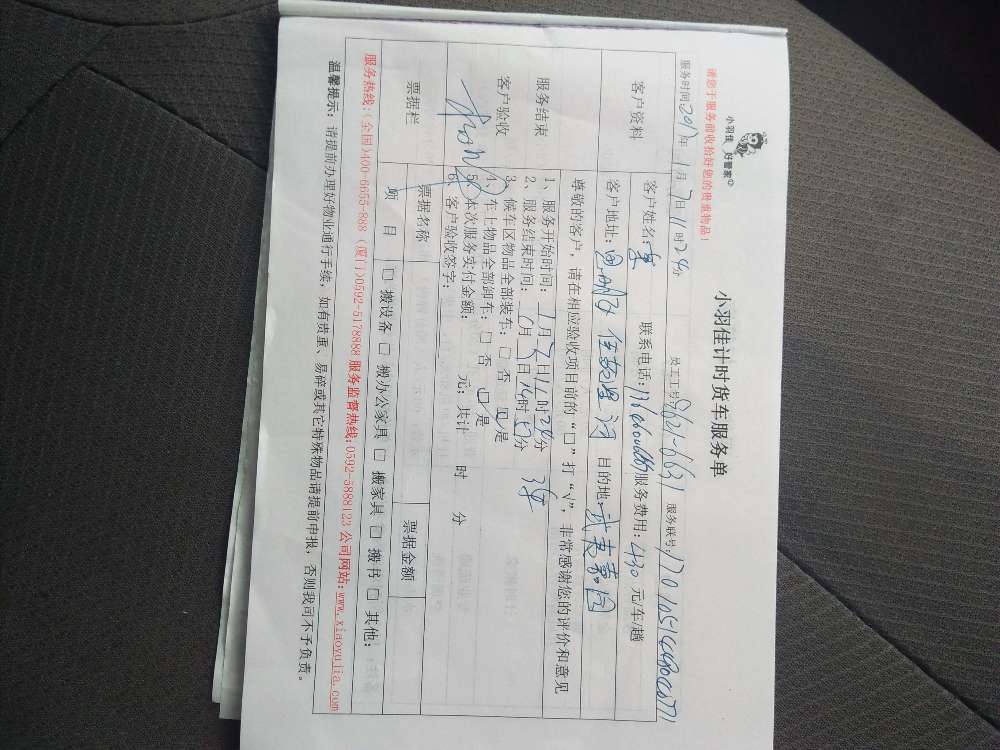 小羽佳 好管家
请您于服务前收拾好您的贵重物品！
小羽佳计时货车服务单
服务时间 2017年1月7日11时24分 员工工号 服务联号:
客户资料
客户姓名: 联系电话: 服务费用:430元/车/趟
客户地址: 目的地:
尊敬的客户，请在相应验收项目前的“□”打“√”，非常感谢您的评价和意见
服务结束
客户验收
1、服务开始时间:1月7日11时24分
2、服务结束时间: 月 日14时 分
3、候车区物品全部装车:□否 ☑是
4、车上物品全部卸车:□否 ☑是
5、本次服务实付金额: 元;共计 时 分
6、客户验收签字:
票据栏
票据名称 票据金额
项 目 □搬设备 □搬办公家具 □搬家具 □搬书 □其他:
服务热线:(全国)400-6055-888 (厦门)0592-5178888 服务监督热线:0592-5888123 公司网站:www.xiaoyujia.com
温馨提示: 请提前办理好物业通行手续，如有贵重、易碎或其它特殊物品请提前申报，否则我司不予负责。